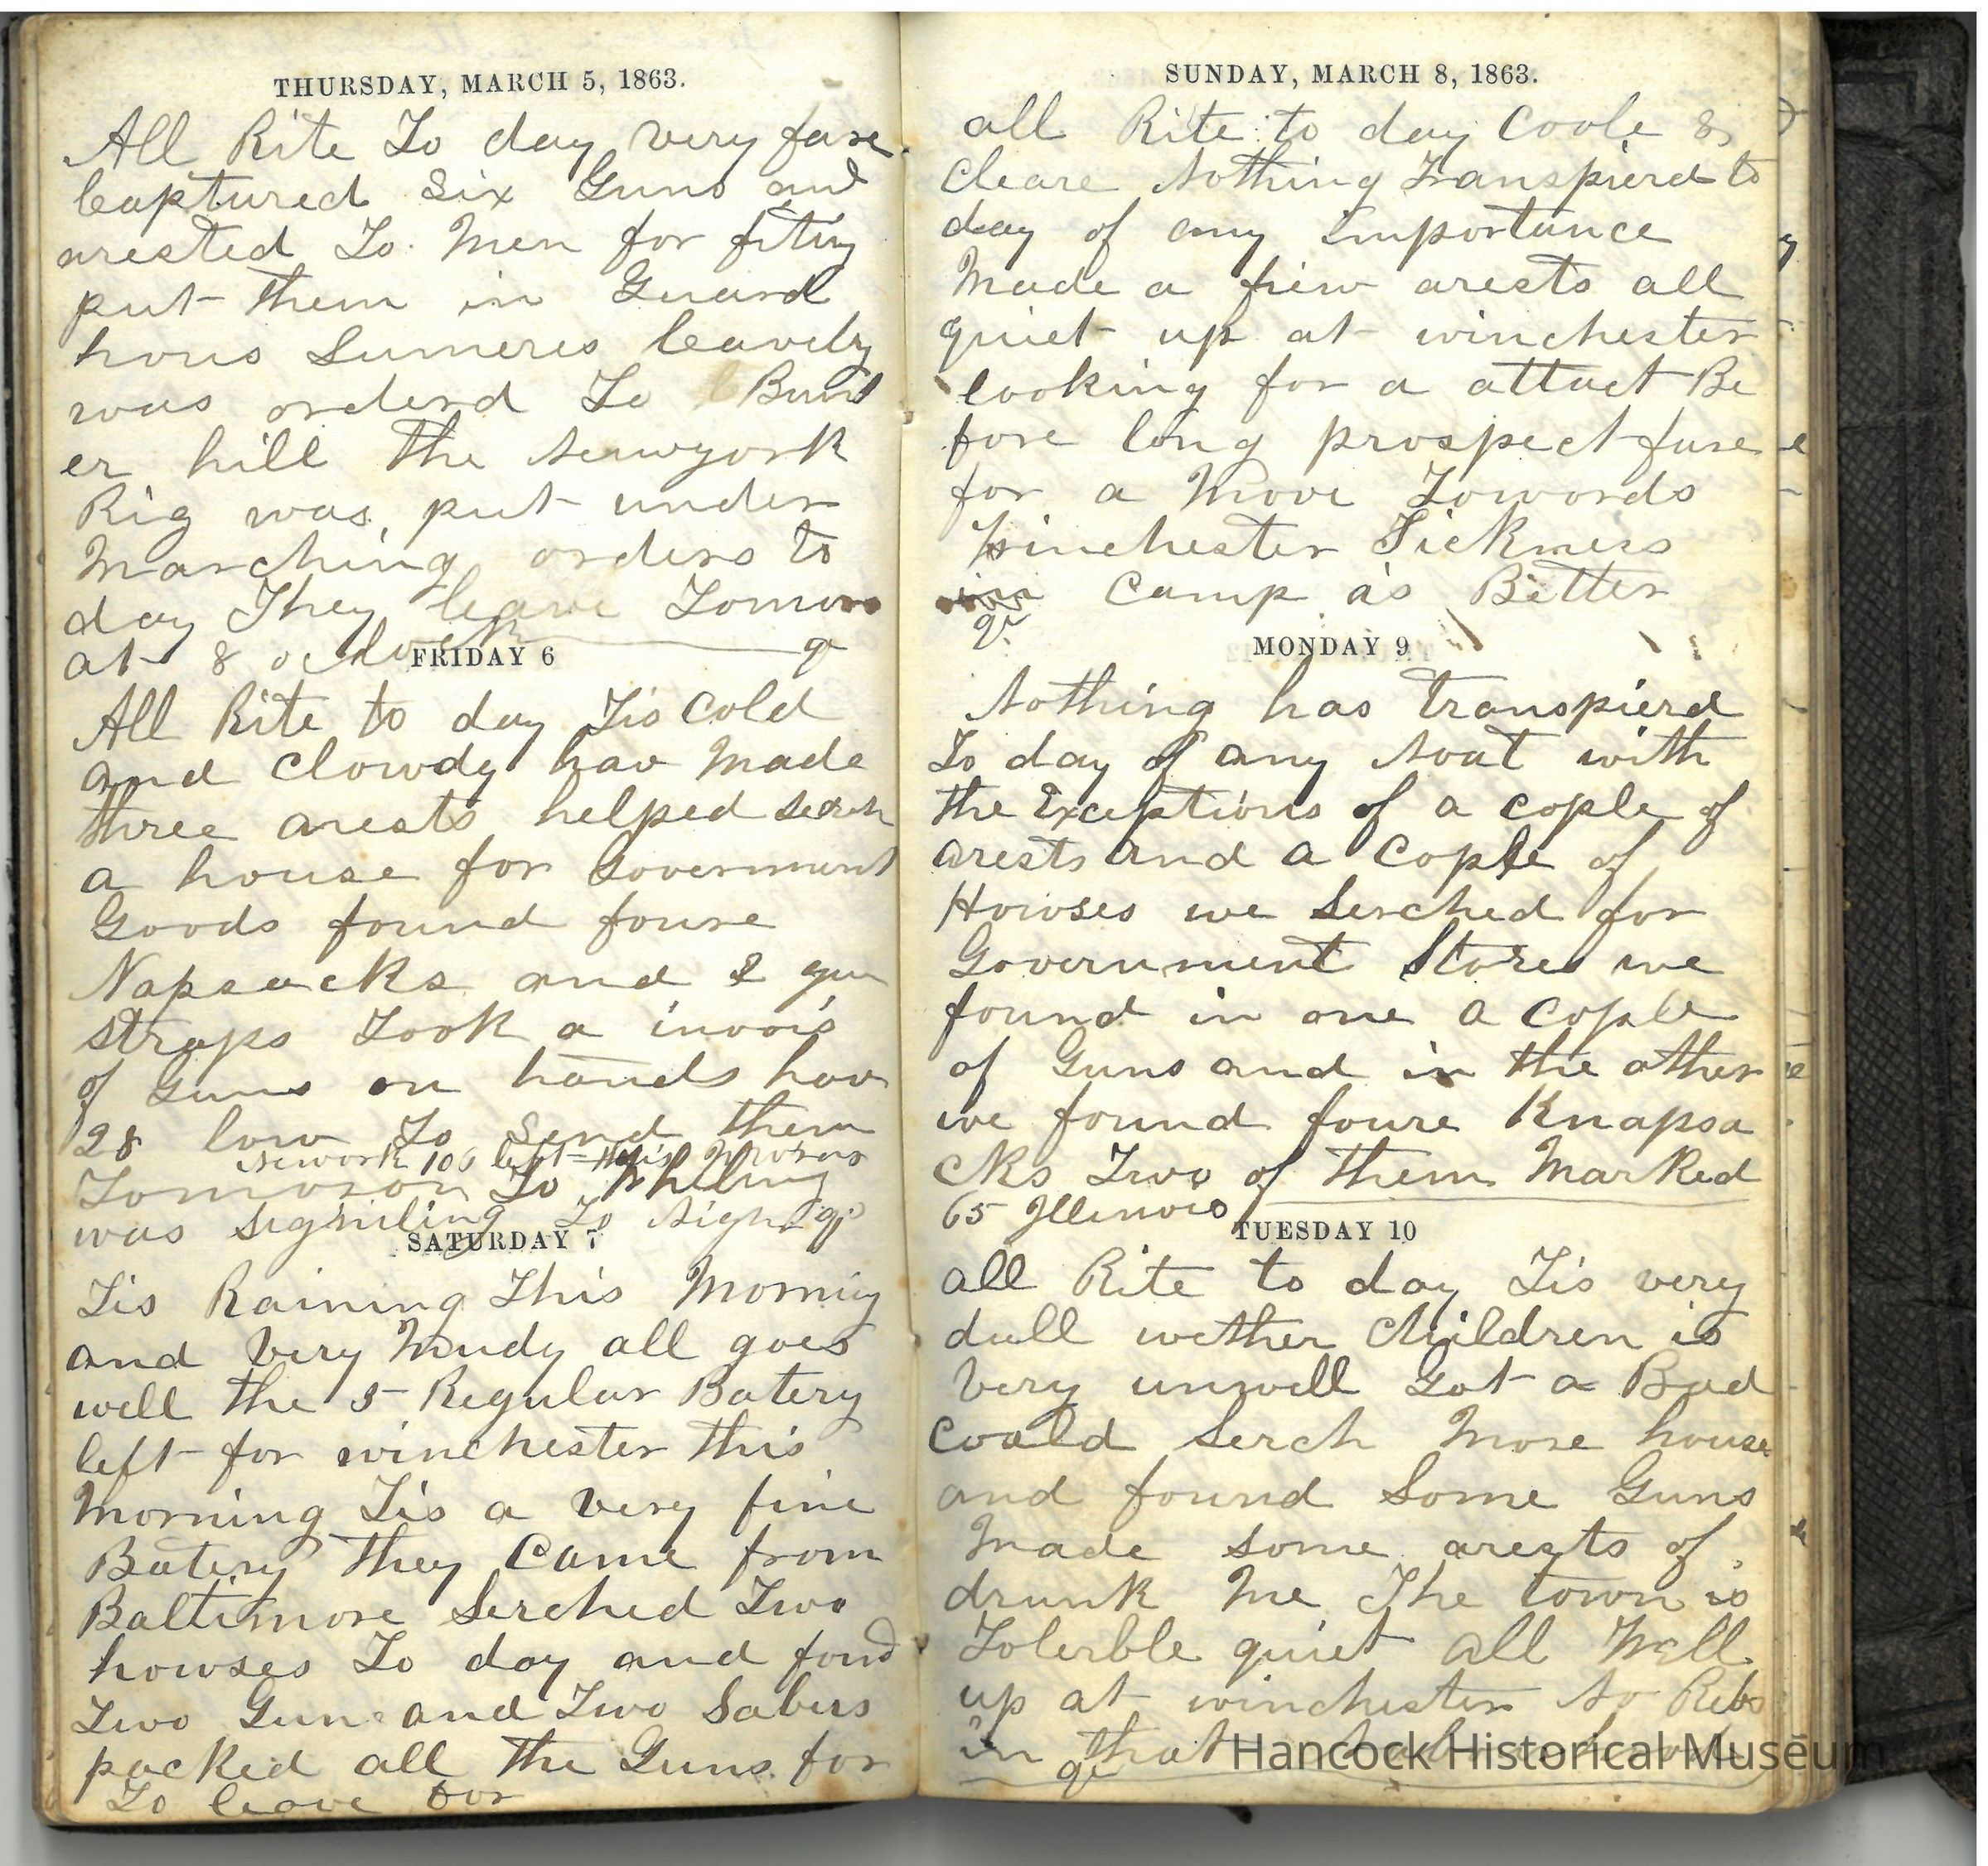 THURSDAY, MARCH 5, 1863.
All Rite To day very fare
Captured Six Guns and
arested To Men for fiting
put them in Guard
hous Sumeres Cavelry
was orderd To Bunk
er hill the Newyork
Rig was put under
Marching orders to
day They leave Tomoro
at 8 oclock
FRIDAY 6
All Rite to day Tis Cold
and Clowdy hav Made
three arests helped serch
a house for Government
Goods found foure
Napsacks and 2 gun
straps Took a invois
of Guns on hands hav
28 low To Send them
Nework 106 left this Morning
Tomoroon To Wheling
was Signiling To Night
SATURDAY 7
Tis Raining This Morning
and Very Mudy all goes
well the 5 Regular Batery
left for winchester this
Morning Tis a very fine
Batery they Came from
Baltimore Serched Two
howses To day and found
Two Guns and Two Sabers
packed all the Guns for
To leave for
SUNDAY, MARCH 8, 1863.
all Rite to day Coole &
Cleare Nothing Transpierd to
day of any Importance
Made a few arests all
quiet up at winchester
looking for a attact Be
fore long prospect fare
for a Move Towords
Winchester Sickness
in Camp is Better
MONDAY 9
Nothing has transpierd
To day of any Noat with
the Exceptions of a cople of
arests and a Cople of
Howses we Serched for
Government Stores we
found in one a Cople
of Guns and in the other
we found foure Knapsa
cks Two of them Marked
65 Illinois
TUESDAY 10
all Rite to day Tis very
dull wether Children is
Very unwell Got a Bad
Coald Serch More house
and found Some Guns
Made some arests of
drunk Me The town is
Tolerble quiet all Well
up at winchester No Rebs
in that
Hancock Historical Museum